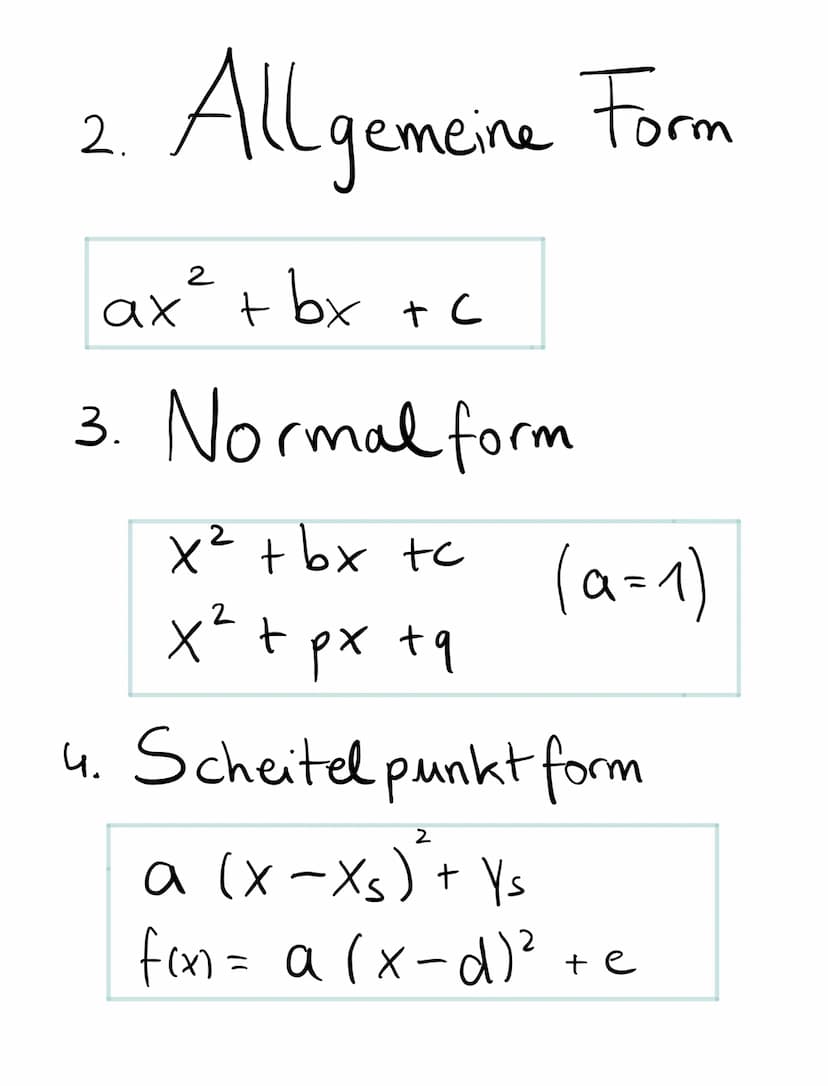 2. Allgemeine Form
ax² + bx + c
3. Normalform
x² + bx + c (a = 1)
x² + px + q
4. Scheitelpunktform
a (x - xₛ)² + yₛ
f(x) = a (x - d)² + e